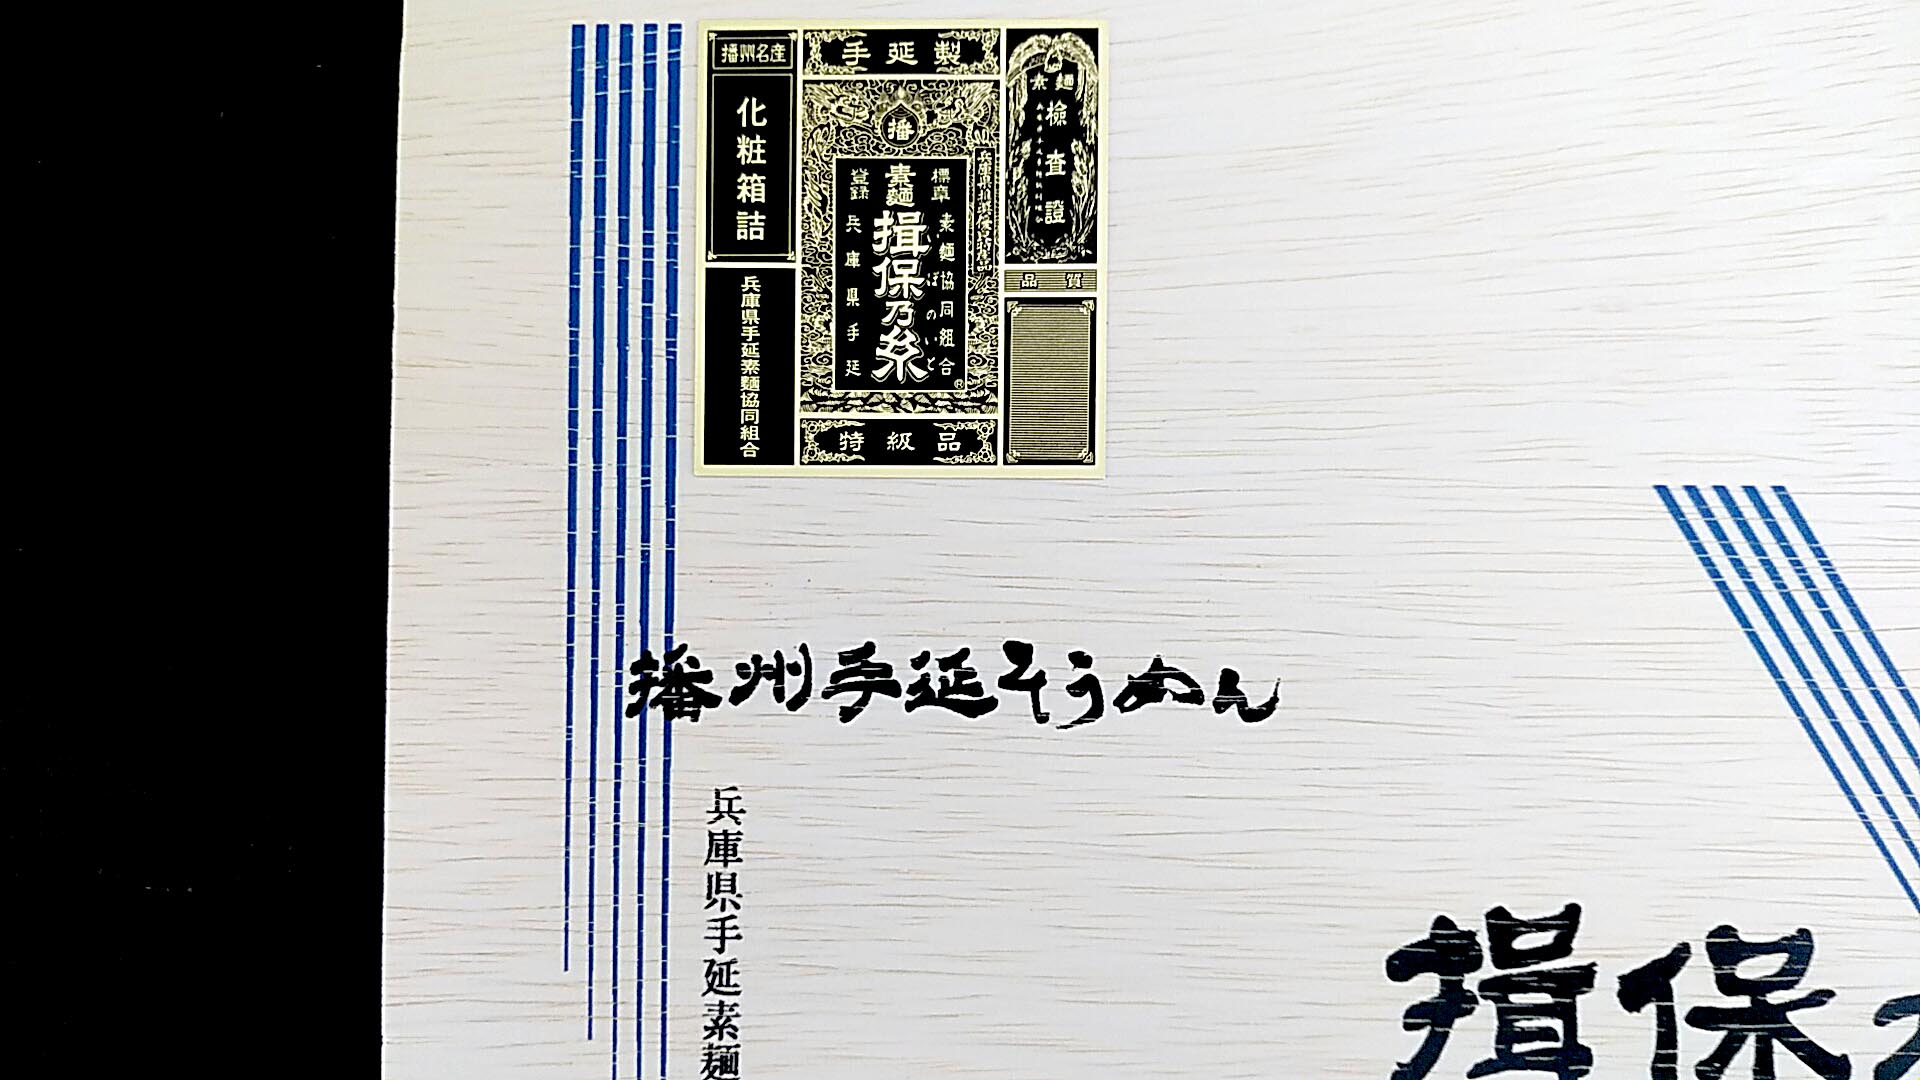 播州名産
化粧箱詰
兵庫県手延素麺協同組合
手延製
播
兵庫県推奨優良特産品
標章
登録
素麺
揖保乃糸
いぼのいと
素麺協同組合
兵庫県手延
®
特級品
素麺
検査證
品質
播州手延そうめん
兵庫県手延素麺
揖保